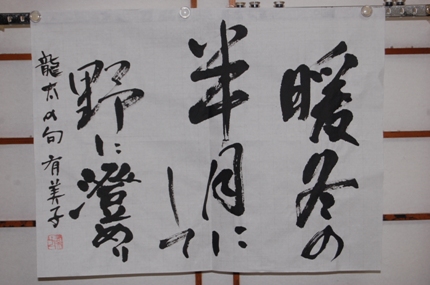 暖冬の
半月に
して
野に澄めり
龍太の句 有美子